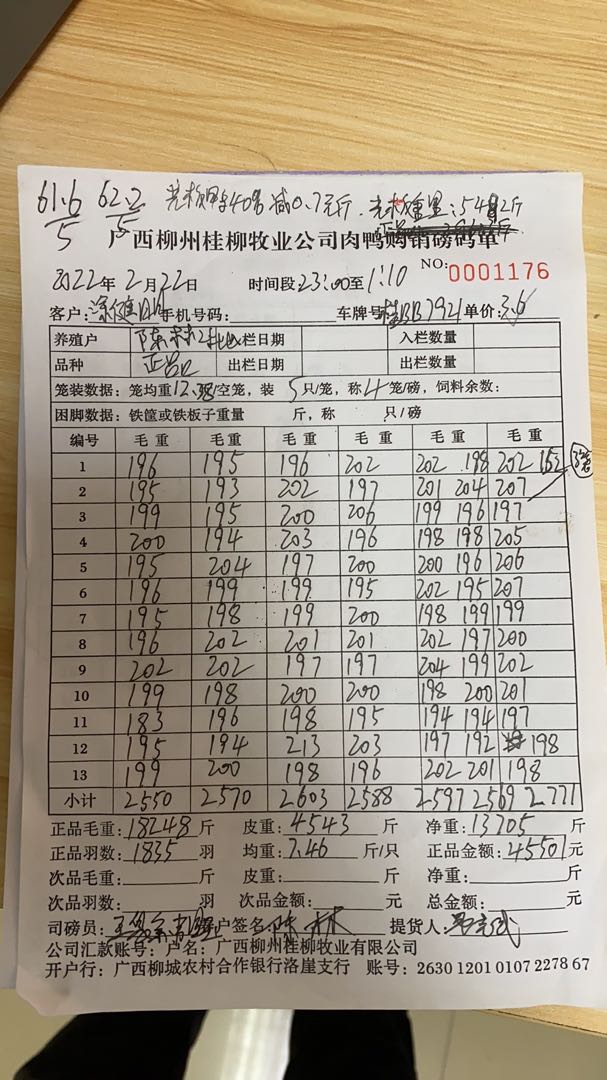 61.6/5 62.2/5 40% 减0.7元/斤
广西柳州桂柳牧业公司肉鸭购销磅码单
NO: 0001176
2022年2月22日 时间段23:00至1:10
客户: 手机号码: 车牌号:桂BB7921 单价:3.6
养殖户 陈林 入栏日期 入栏数量
品种 出栏日期 出栏数量
笼装数据: 笼均重12.38/空笼, 装5只/笼, 称4笼/磅, 饲料余数:
困脚数据: 铁筐或铁板子重量 斤, 称 只/磅
编号 毛重 毛重 毛重 毛重 毛重 毛重
1 196 195 196 202 202 198 202 152 3笼
2 195 193 202 197 201 204 207
3 199 195 200 206 199 196 197
4 200 194 203 196 198 198 205
5 195 204 197 200 200 196 206
6 196 199 199 195 202 195 207
7 195 198 199 200 198 199 199
8 196 202 201 201 202 197 200
9 202 202 197 197 204 199 202
10 199 198 200 200 198 200 201
11 183 196 198 195 194 194 197
12 195 194 213 203 197 192 198
13 199 200 198 196 202 201 198
小计 2550 2570 2603 2588 2597 2569 2771
正品毛重:18248斤 皮重:4543斤 净重:13705斤
正品羽数:1835羽 均重:7.46斤/只 正品金额:45501元
次品毛重: 斤 皮重: 斤 净重: 斤
次品羽数: 羽 次品金额: 元 总金额: 元
司磅员: 户签名:陈林 提货人:
公司汇款账号: 户名: 广西柳州桂柳牧业有限公司
开户行: 广西柳城农村合作银行洛崖支行 账号: 2630 1201 0107 2278 67